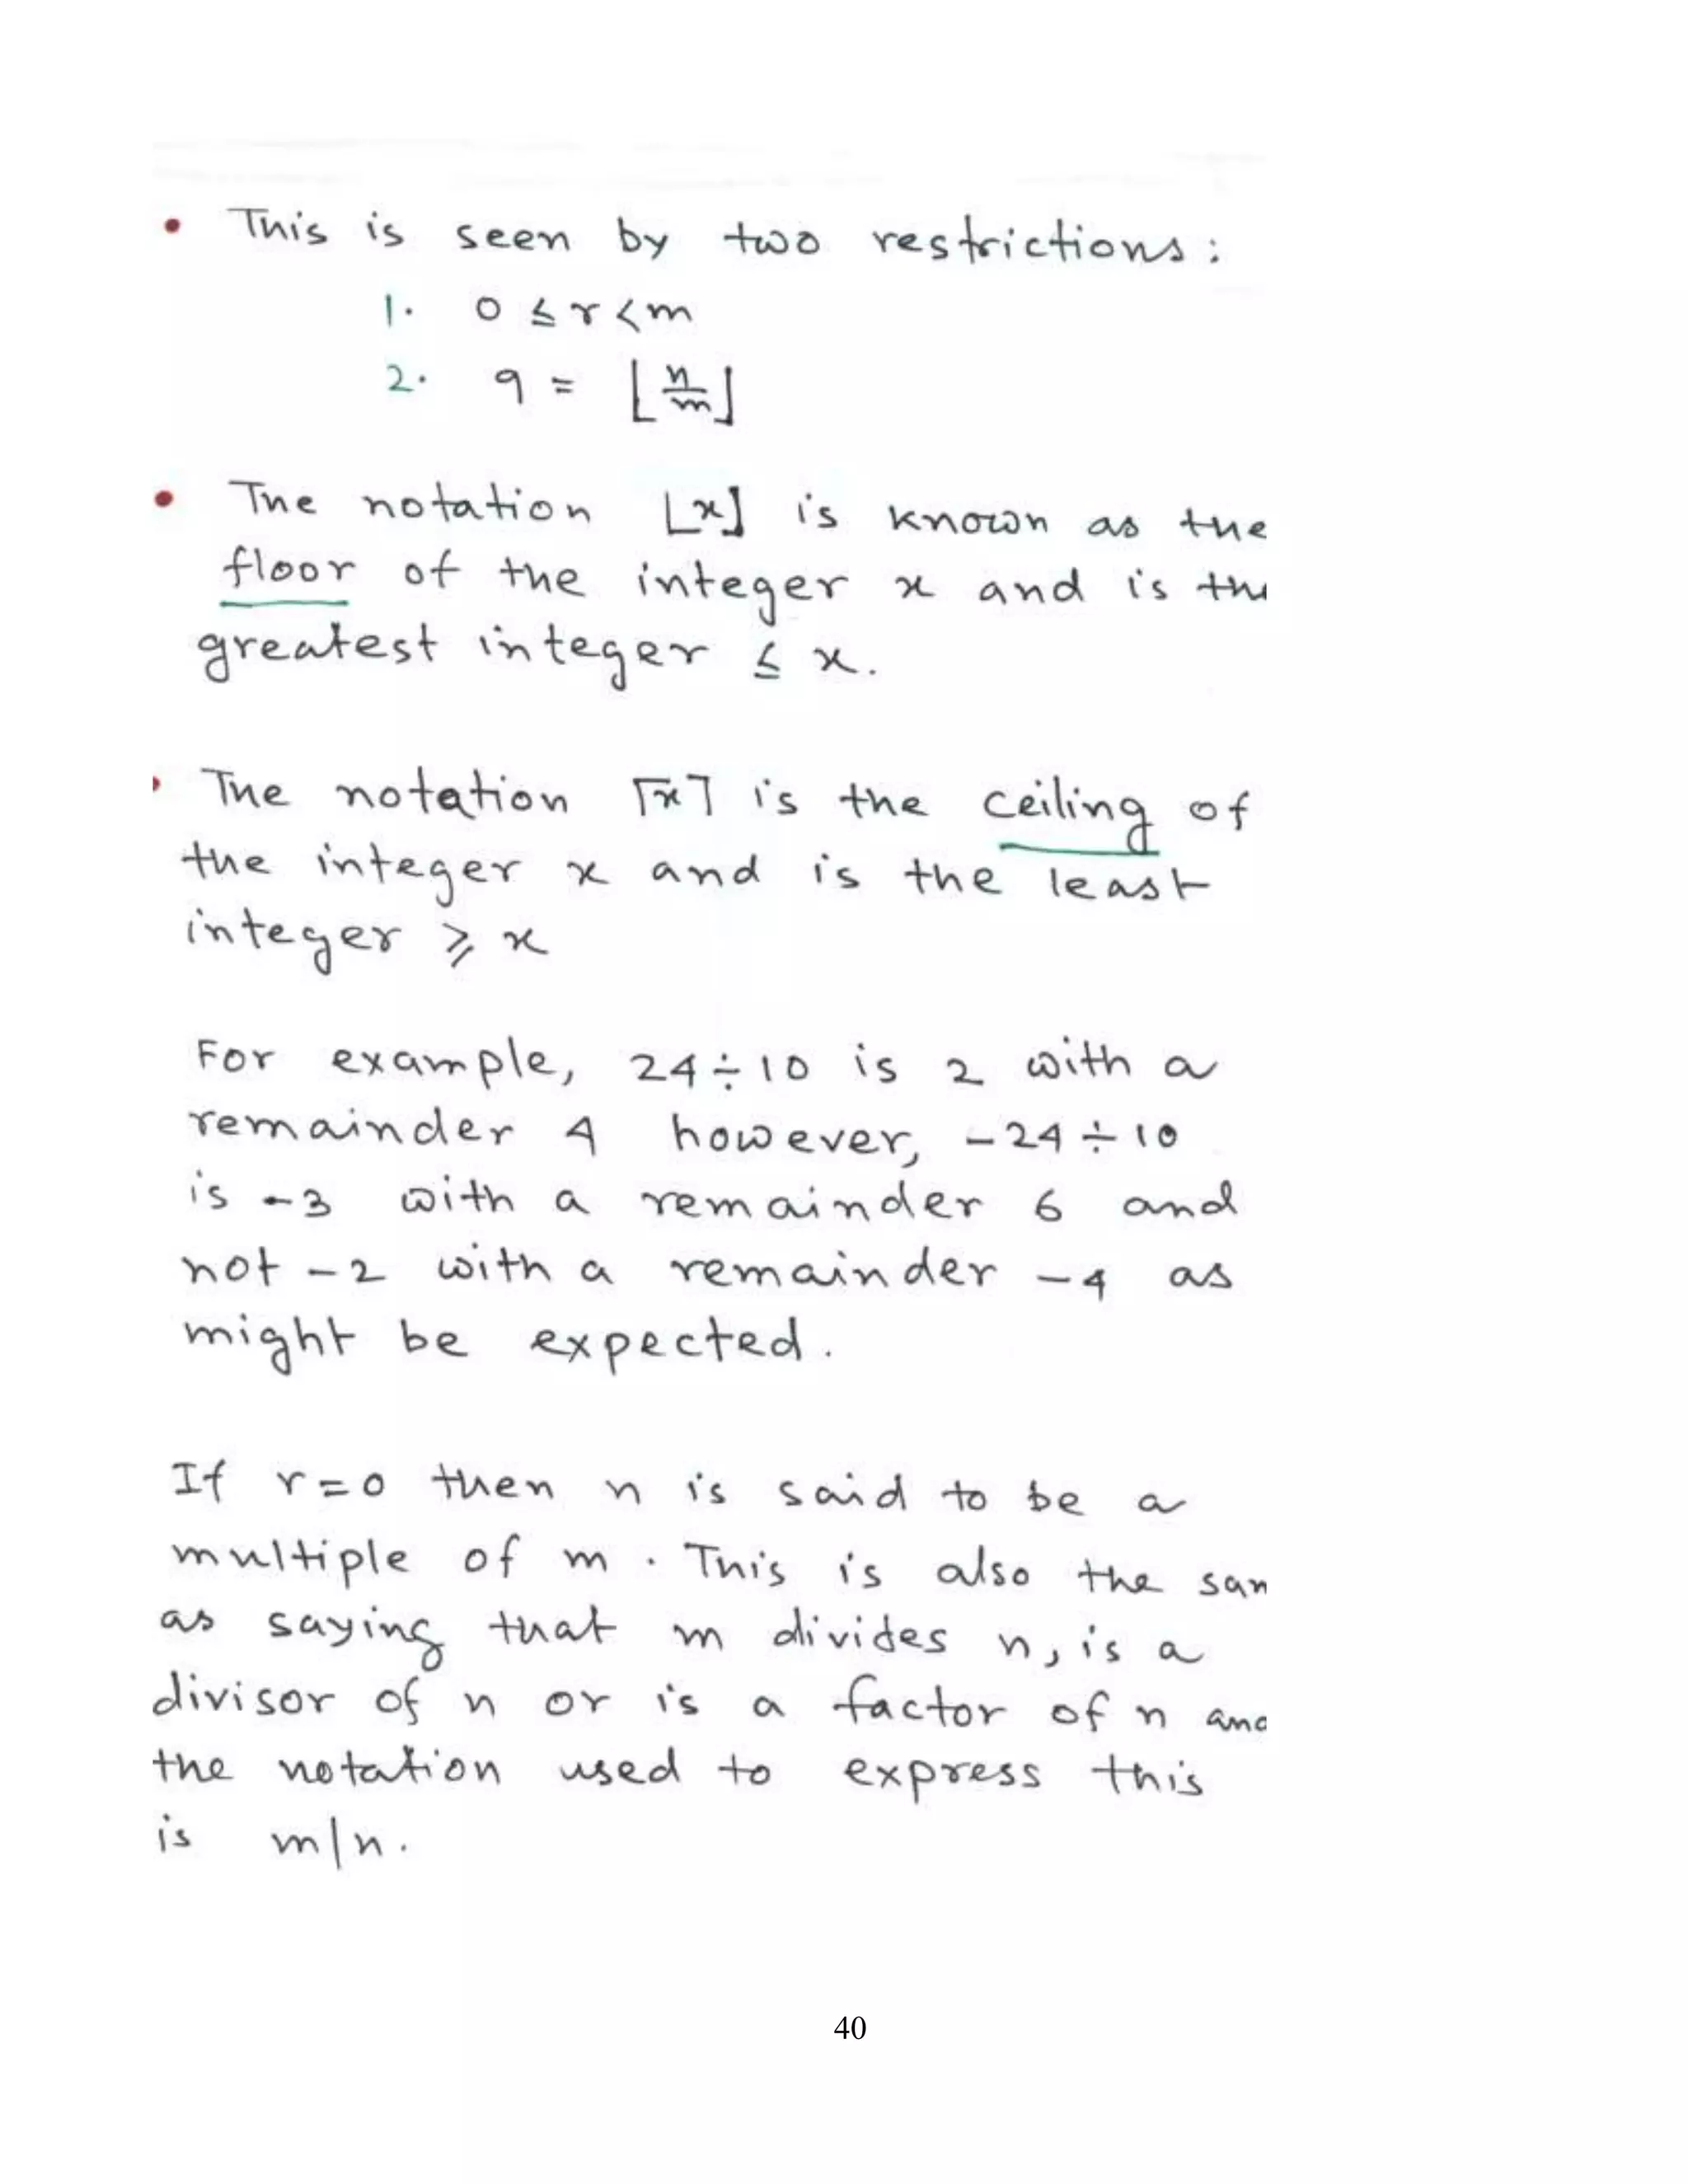 • This is seen by two restrictions:
1. 0 ≤ r < m
2. q = ⌊n/m⌋
• The notation ⌊x⌋ is known as the
floor of the integer x and is the
greatest integer ≤ x.
• The notation ⌈x⌉ is the ceiling of
the integer x and is the least
integer ≥ x
For example, 24÷10 is 2 with a
remainder 4 however, -24÷10
is -3 with a remainder 6 and
not -2 with a remainder -4 as
might be expected.
If r=0 then n is said to be a
multiple of m. This is also the sam
as saying that m divides n, is a
divisor of n or is a factor of n and
the notation used to express this
is m|n.
40